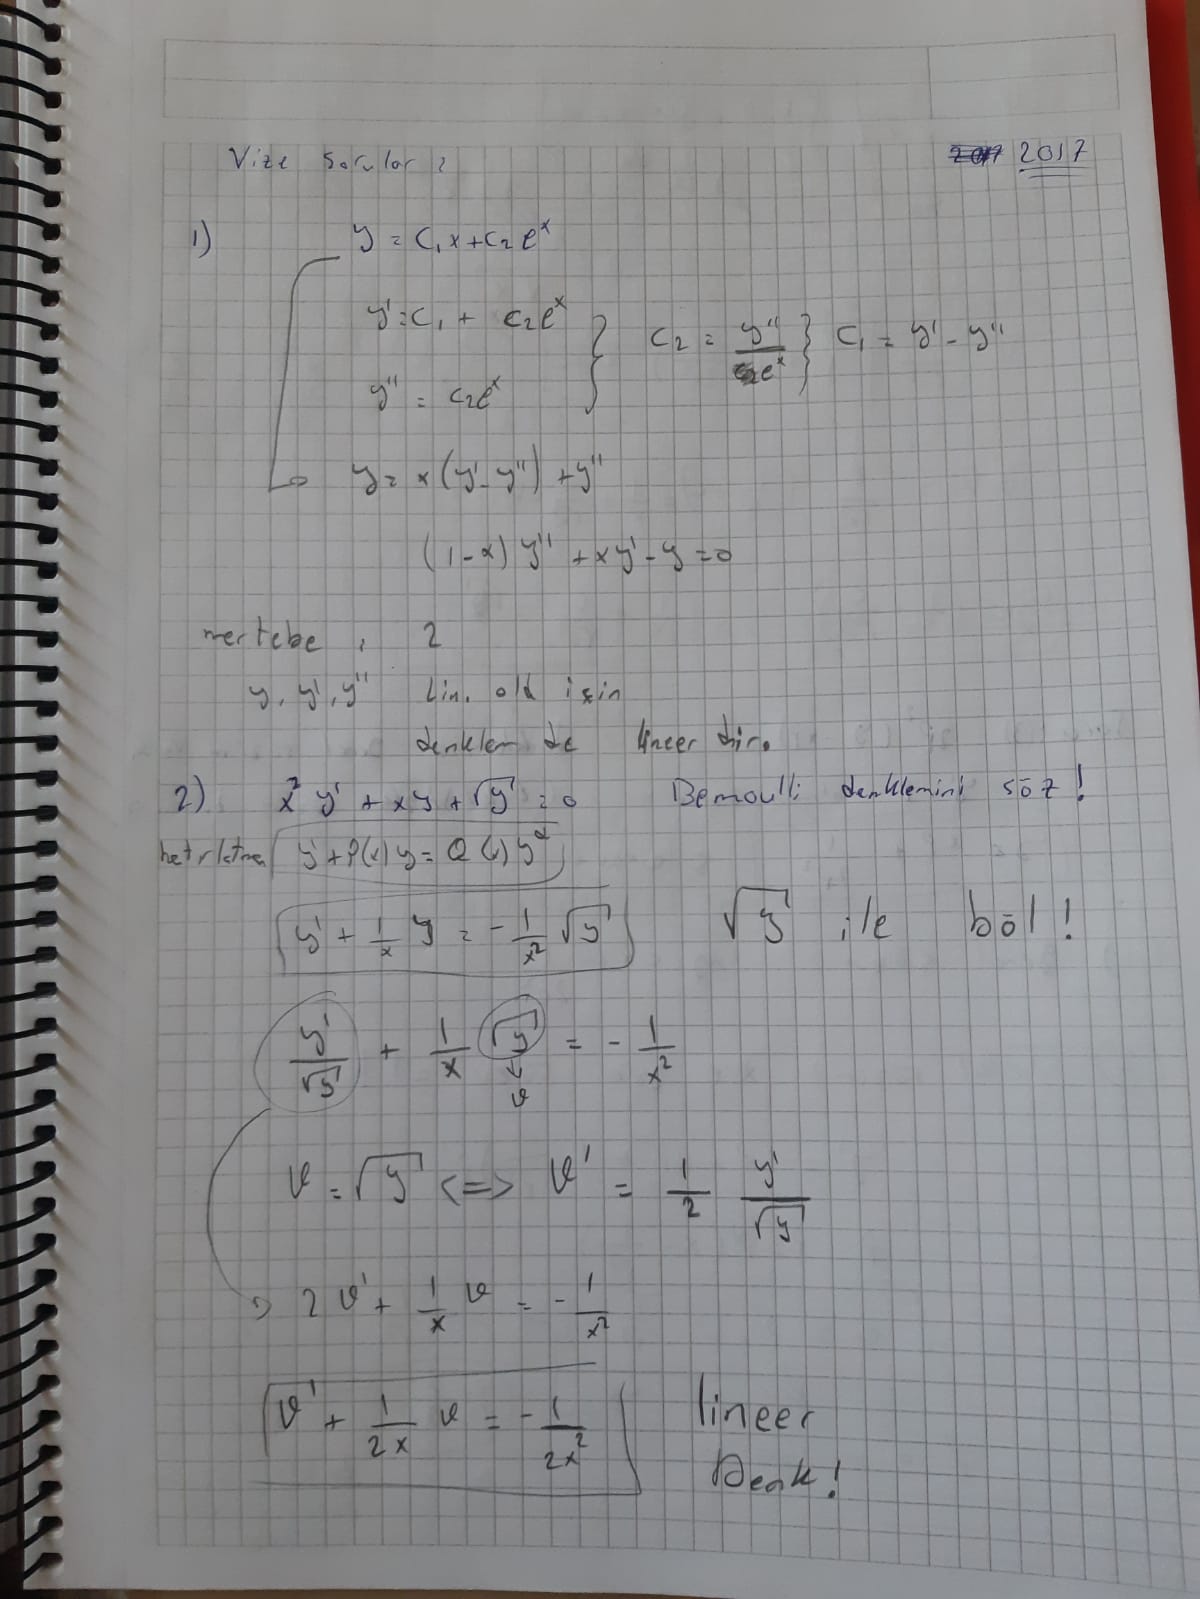 Vize Sorular : 2017
1) y = c₁x + c₂eˣ
y' = c₁ + c₂eˣ } c₂ = y''/eˣ } c₁ = y' - y''
y'' = c₂eˣ
y = x(y' - y'') + y''
(1-x) y'' + xy' - y = 0
mertebe : 2
y, y', y'' Lin. old için
denklem de lineer dir.
2) x² y' + xy + √y = 0 Bernoulli denklemini çöz!
hatırlatma y' + P(x) y = Q(x) y^α
y' + 1/x y = - 1/x² √y √y ile böl!
y'/√y + 1/x √y = - 1/x²
v
v = √y <=> v' = 1/2 y'/√y
2v' + 1/x v = - 1/x²
v' + 1/2x v = - 1/2x² lineer
Denk!